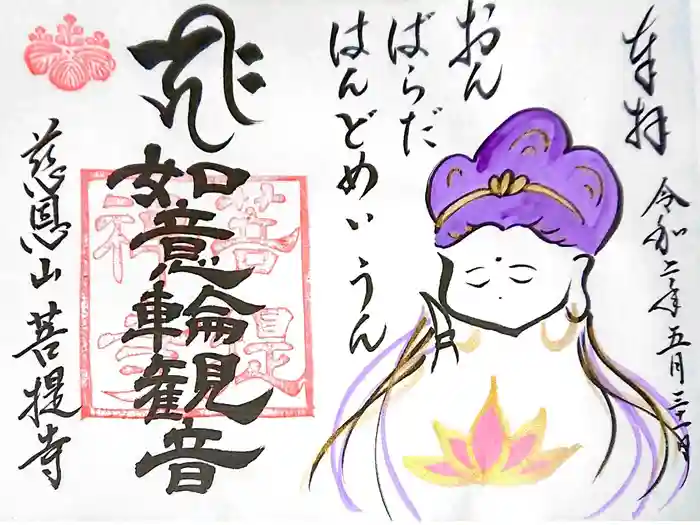 奉拝
令和二年五月三十一日
おん
ばらだ
はんどめい うん
如意輪観音
慈恩山 菩提寺